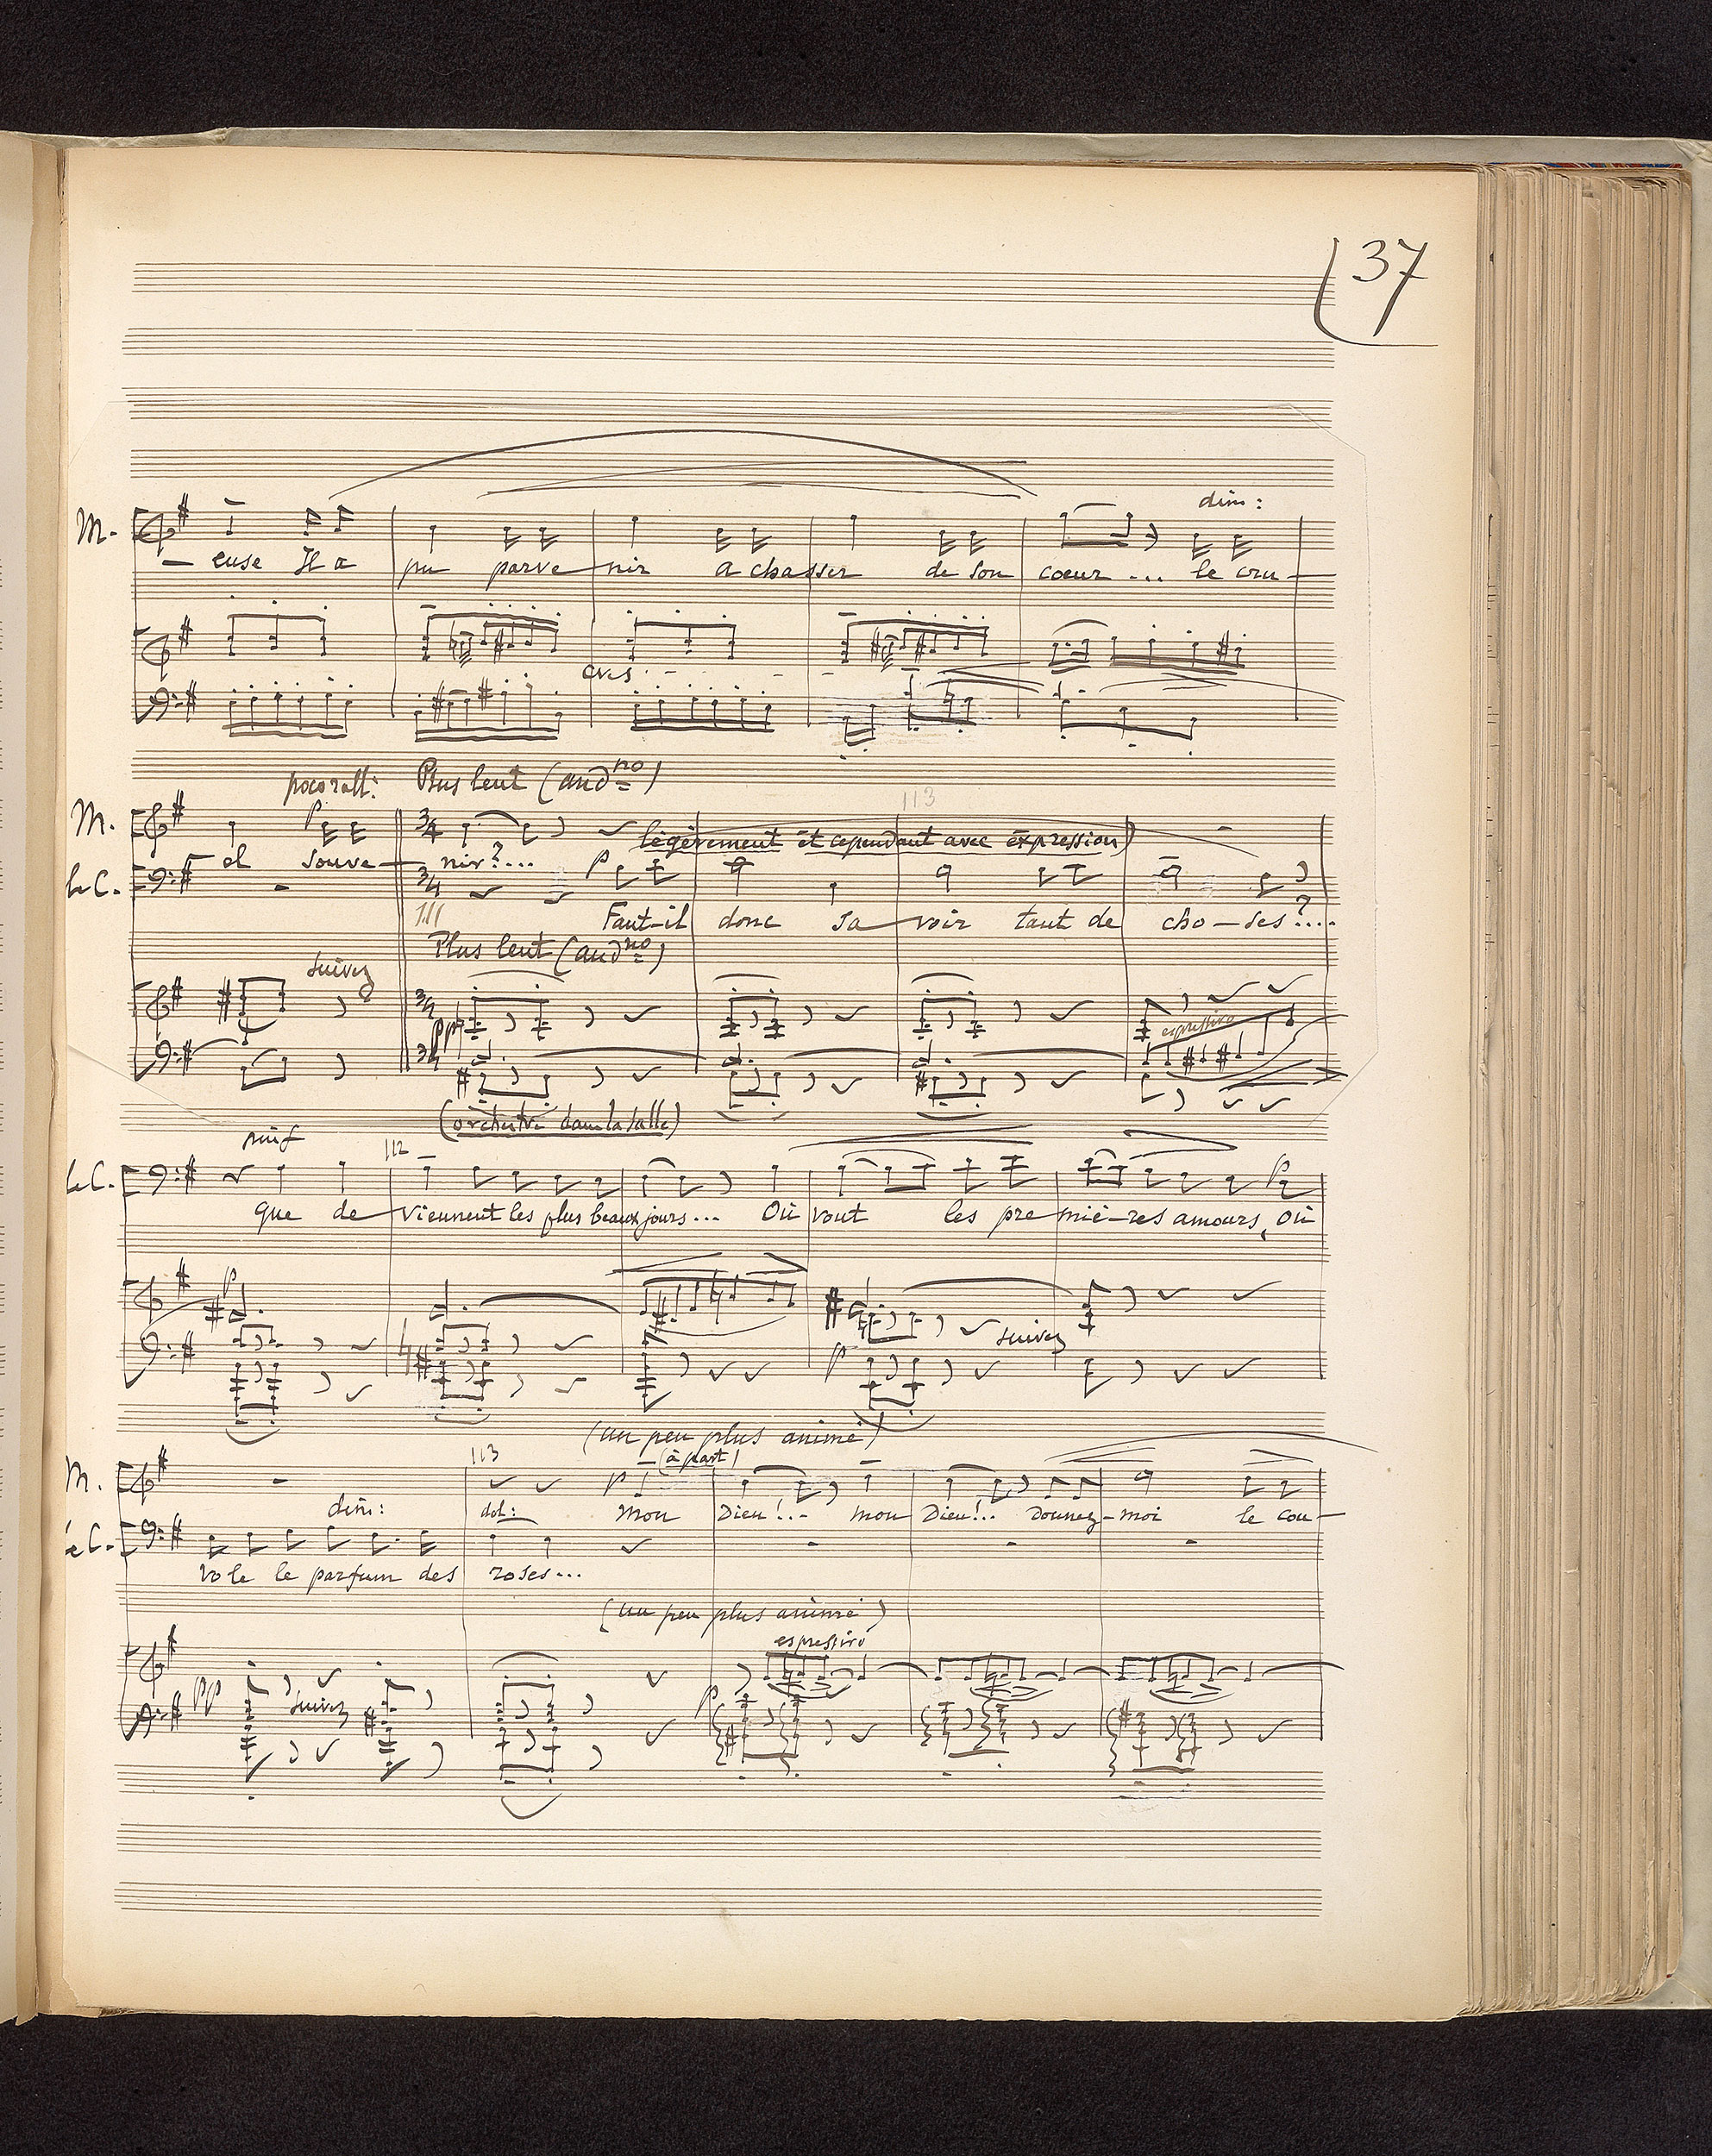 37
dim:
M.
– euse Il a pu parve – nir a chasser de son coeur ... le cru –
cres - - - -
poco rall: Plus lent (andno)
113
M.
légèrement et cependant avec expression)
el souve – nir?...
le C.
Faut-il donc sa – voir tant de cho – ses?....
111
Plus lent (andno)
suivez
pp
espressivo
(orchestre dans la salle)
112
le C.
que de – viennent les plus beaux jours... Où vont les pre – miè – res amours, Où
p
suivez
p
(un peu plus animé)
113
(à part)
M.
p
Mon Dieu!.. mon Dieu!.. Donnez – moi le cou –
dim: dol:
le C.
vo le le parfum des roses...
(un peu plus animé)
espressivo
pp suivez p